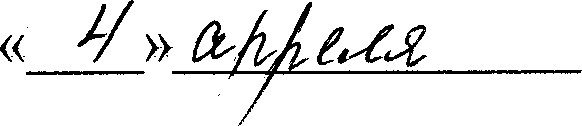 « 4 » апреля